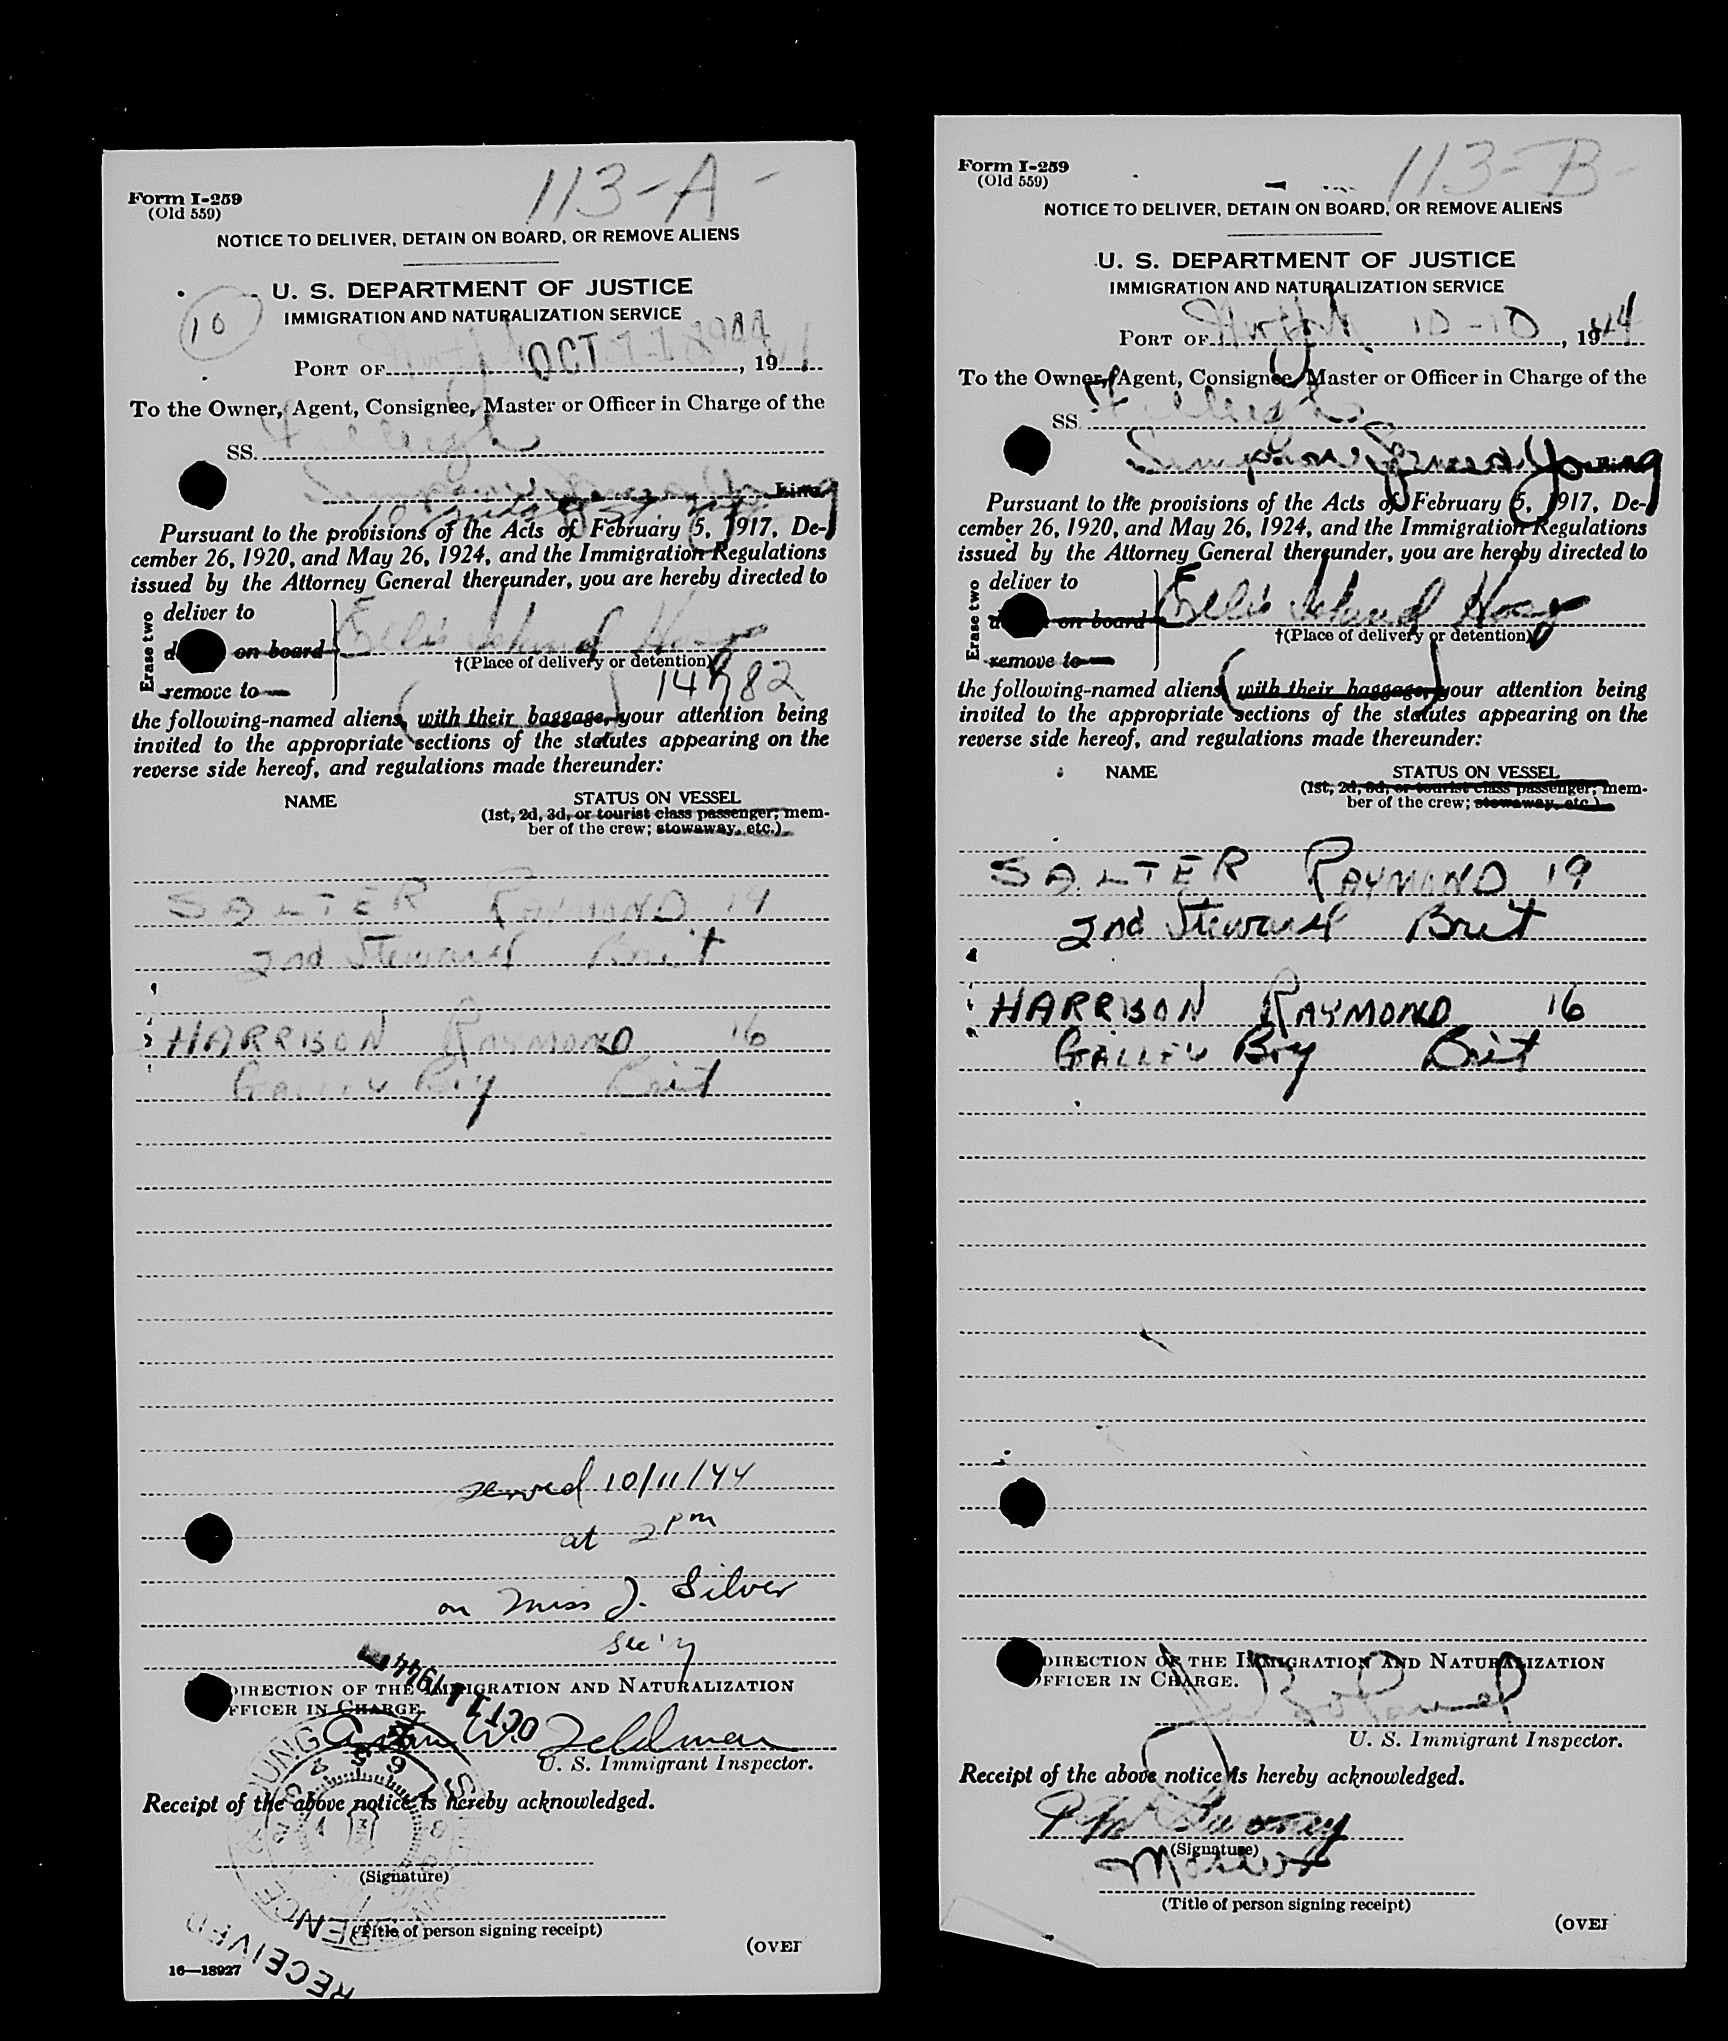 113-A-
Form I-259
(Old 559)
NOTICE TO DELIVER, DETAIN ON BOARD, OR REMOVE ALIENS
U. S. DEPARTMENT OF JUSTICE
10
IMMIGRATION AND NATURALIZATION SERVICE
PORT OF OCT 11 1944, 19
To the Owner, Agent, Consignee, Master or Officer in Charge of the
SS.
Simpson Spence & Young Line
Pursuant to the provisions of the Acts of February 5, 1917, De-
cember 26, 1920, and May 26, 1924, and the Immigration Regulations
issued by the Attorney General thereunder, you are hereby directed to
Erase two
deliver to
on board
remove to
Ellis Island Hosp
†(Place of delivery or detention)
14782
the following-named aliens (with their baggage,) your attention being
invited to the appropriate sections of the statutes appearing on the
reverse side hereof, and regulations made thereunder:
NAME STATUS ON VESSEL
(1st, 2d, 3d, or tourist class passenger; mem-
ber of the crew; stowaway, etc.)
SALTER RAYMOND 19
2nd Steward Brit
HARRISON RAYMOND 16
GALLEY Boy Brit
served 10/11/44
at 2 pm
on Miss J. Silver
Sec'y
OCT 11 1944
DIRECTION OF THE IMMIGRATION AND NATURALIZATION
OFFICER IN CHARGE.
W. Feldman
U. S. Immigrant Inspector.
Receipt of the above notice is hereby acknowledged.
(Signature)
(Title of person signing receipt)
RECEIVED
(OVER
16—18927
113-B-
Form I-259
(Old 559)
NOTICE TO DELIVER, DETAIN ON BOARD, OR REMOVE ALIENS
U. S. DEPARTMENT OF JUSTICE
IMMIGRATION AND NATURALIZATION SERVICE
PORT OF 10-10, 1944
To the Owner, Agent, Consignee, Master or Officer in Charge of the
SS.
Simpson Spence & Young Line
Pursuant to the provisions of the Acts of February 5, 1917, De-
cember 26, 1920, and May 26, 1924, and the Immigration Regulations
issued by the Attorney General thereunder, you are hereby directed to
Erase two
deliver to
on board
remove to
Ellis Island Hosp
†(Place of delivery or detention)
the following-named aliens (with their baggage,) your attention being
invited to the appropriate sections of the statutes appearing on the
reverse side hereof, and regulations made thereunder:
NAME STATUS ON VESSEL
(1st, 2d, 3d, or tourist class passenger; mem-
ber of the crew; stowaway, etc.)
SALTER RAYMOND 19
2nd Steward Brit
HARRISON RAYMOND 16
GALLEY Boy Brit
DIRECTION OF THE IMMIGRATION AND NATURALIZATION
OFFICER IN CHARGE.
U. S. Immigrant Inspector.
Receipt of the above notice is hereby acknowledged.
(Signature)
Master
(Title of person signing receipt)
(OVER